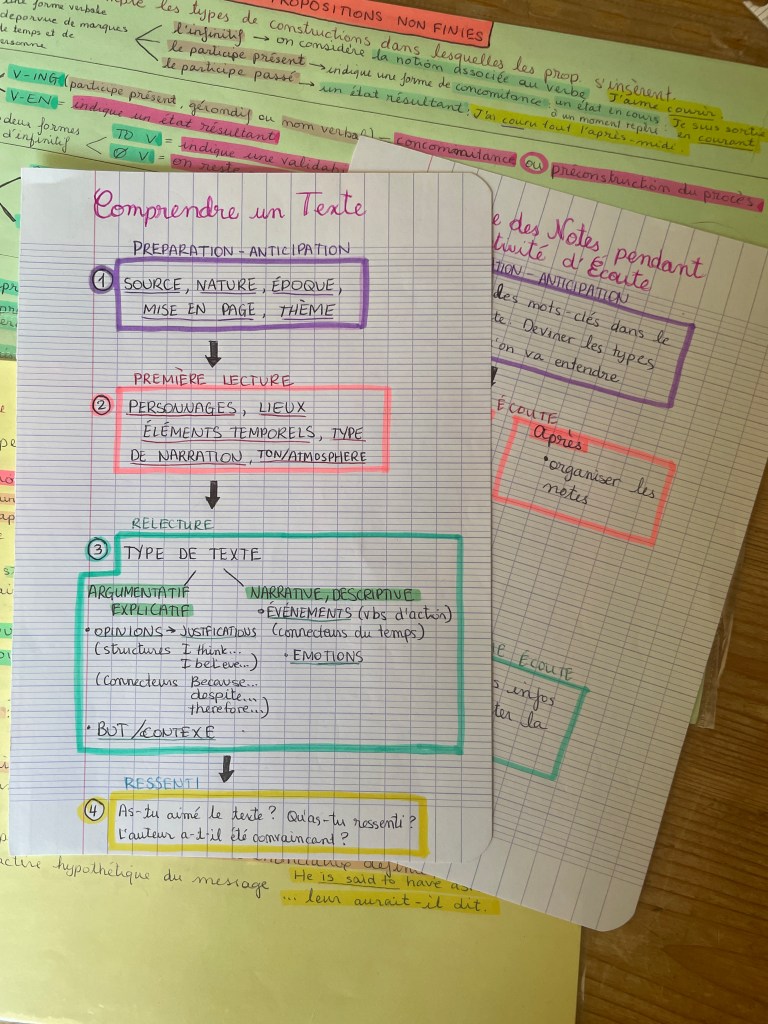 PROPOSITIONS NON FINIES
une forme verbale
les types de constructions dans lesquelles les prop. s'insèrent.
de temps et de
l'infinitif → on considère la notion associée au verbe J'aime courir.
le participe présent → indique une forme de concomitance, un état en cours
le participe passé → un état résultant: J'ai couru tout l'après-midi.
à un moment repère: Je suis sortie
en courant
V-ING (participe présent, gérondif ou nom verbal) = concomitance ou préconstruction du procès
V-EN = indique un état résultant
deux formes
d'infinitif
TO V = indique une
Ø V =
Comprendre un Texte
PREPARATION - ANTICIPATION
1
SOURCE, NATURE, ÉPOQUE,
MISE EN PAGE, THÈME
PREMIÈRE LECTURE
2
PERSONNAGES, LIEUX
ÉLÉMENTS TEMPORELS, TYPE
DE NARRATION, TON/ATMOSPHERE
RELECTURE
3
TYPE DE TEXTE
ARGUMENTATIF
EXPLICATIF
• OPINIONS → JUSTFICATIONS
(structures I think...
I believe...)
(connecteurs Because...
despite...
therefore...)
• BUT / CONTEXE
NARRATIVE, DESCRIPTIVE
• ÉVÉNEMENTS (vbs d'action)
(connecteurs du temps)
• EMOTIONS
RESSENTI
4
As-tu aimé le texte? Qu'as-tu ressenti?
L'auteur a-t-il été convaincant?
des Notes pendant
d'Écoute
ANTICIPATION
des mots-clés dans le
Deviner les types
on va entendre
ÉCOUTE
Après
• organiser les
notes
ÉCOUTE
infos
la
hypothétique du message
He is said to have
... leur aurait-il dit.